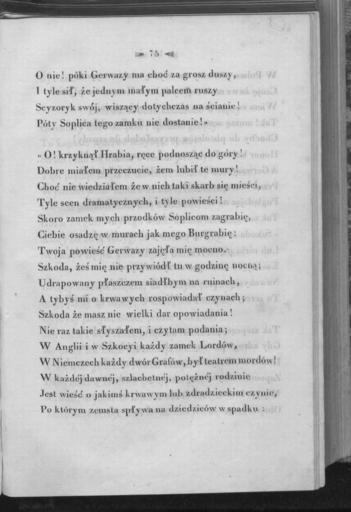 75
O nie! póki Gerwazy ma choć za grosz duszy,
I tyle sił, że jednym małym palcem ruszy
Scyzoryk swój, wiszący dotychczas na ścianie!
Póty Soplica tego zamku nie dostanie!»
« O! krzyknął Hrabia, ręce podnosząc do góry!
Dobre miałem przeczucie, żem lubił te mury!
Choć nie wiedziałem że w nich taki skarb się mieści,
Tyle scen dramatycznych, i tyle powieści!
Skoro zamek mych przodków Soplicom zagrabię,
Ciebie osadzę w murach jak mego Burgrabię:
Twoja powieść Gerwazy zajęła mię mocno.
Szkoda, żeś mię nie przywiódł tu w godzinę nocną;
Udrapowany płaszczem siadłbym na ruinach,
A tybyś mi o krwawych rospowiadał czynach;
Szkoda że masz nie wielki dar opowiadania!
Nie raz takie słyszałem, i czytam podania;
W Anglii i w Szkocyi każdy zamek Lordów,
W Niemczech każdy dwór Grafów, był teatrem mordów!
W każdéj dawnéj, szlachetnéj, potężnéj rodzinie
Jest wieść o jakimś krwawym lub zdradzieckim czynie,
Po którym zemsta spływa na dziedziców w spadku :